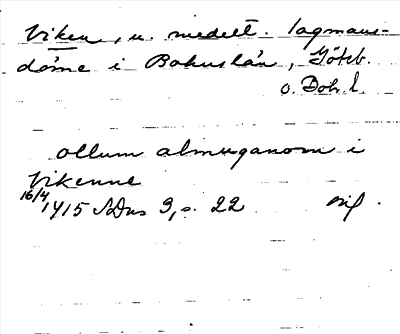 Viken, u. medelt. lagmans-
döme i Bohuslän, Göteb.
o. Boh. l.
ollum almuganom i
Vikenne
16/4 1415 SDns 3, s. 22 orig.